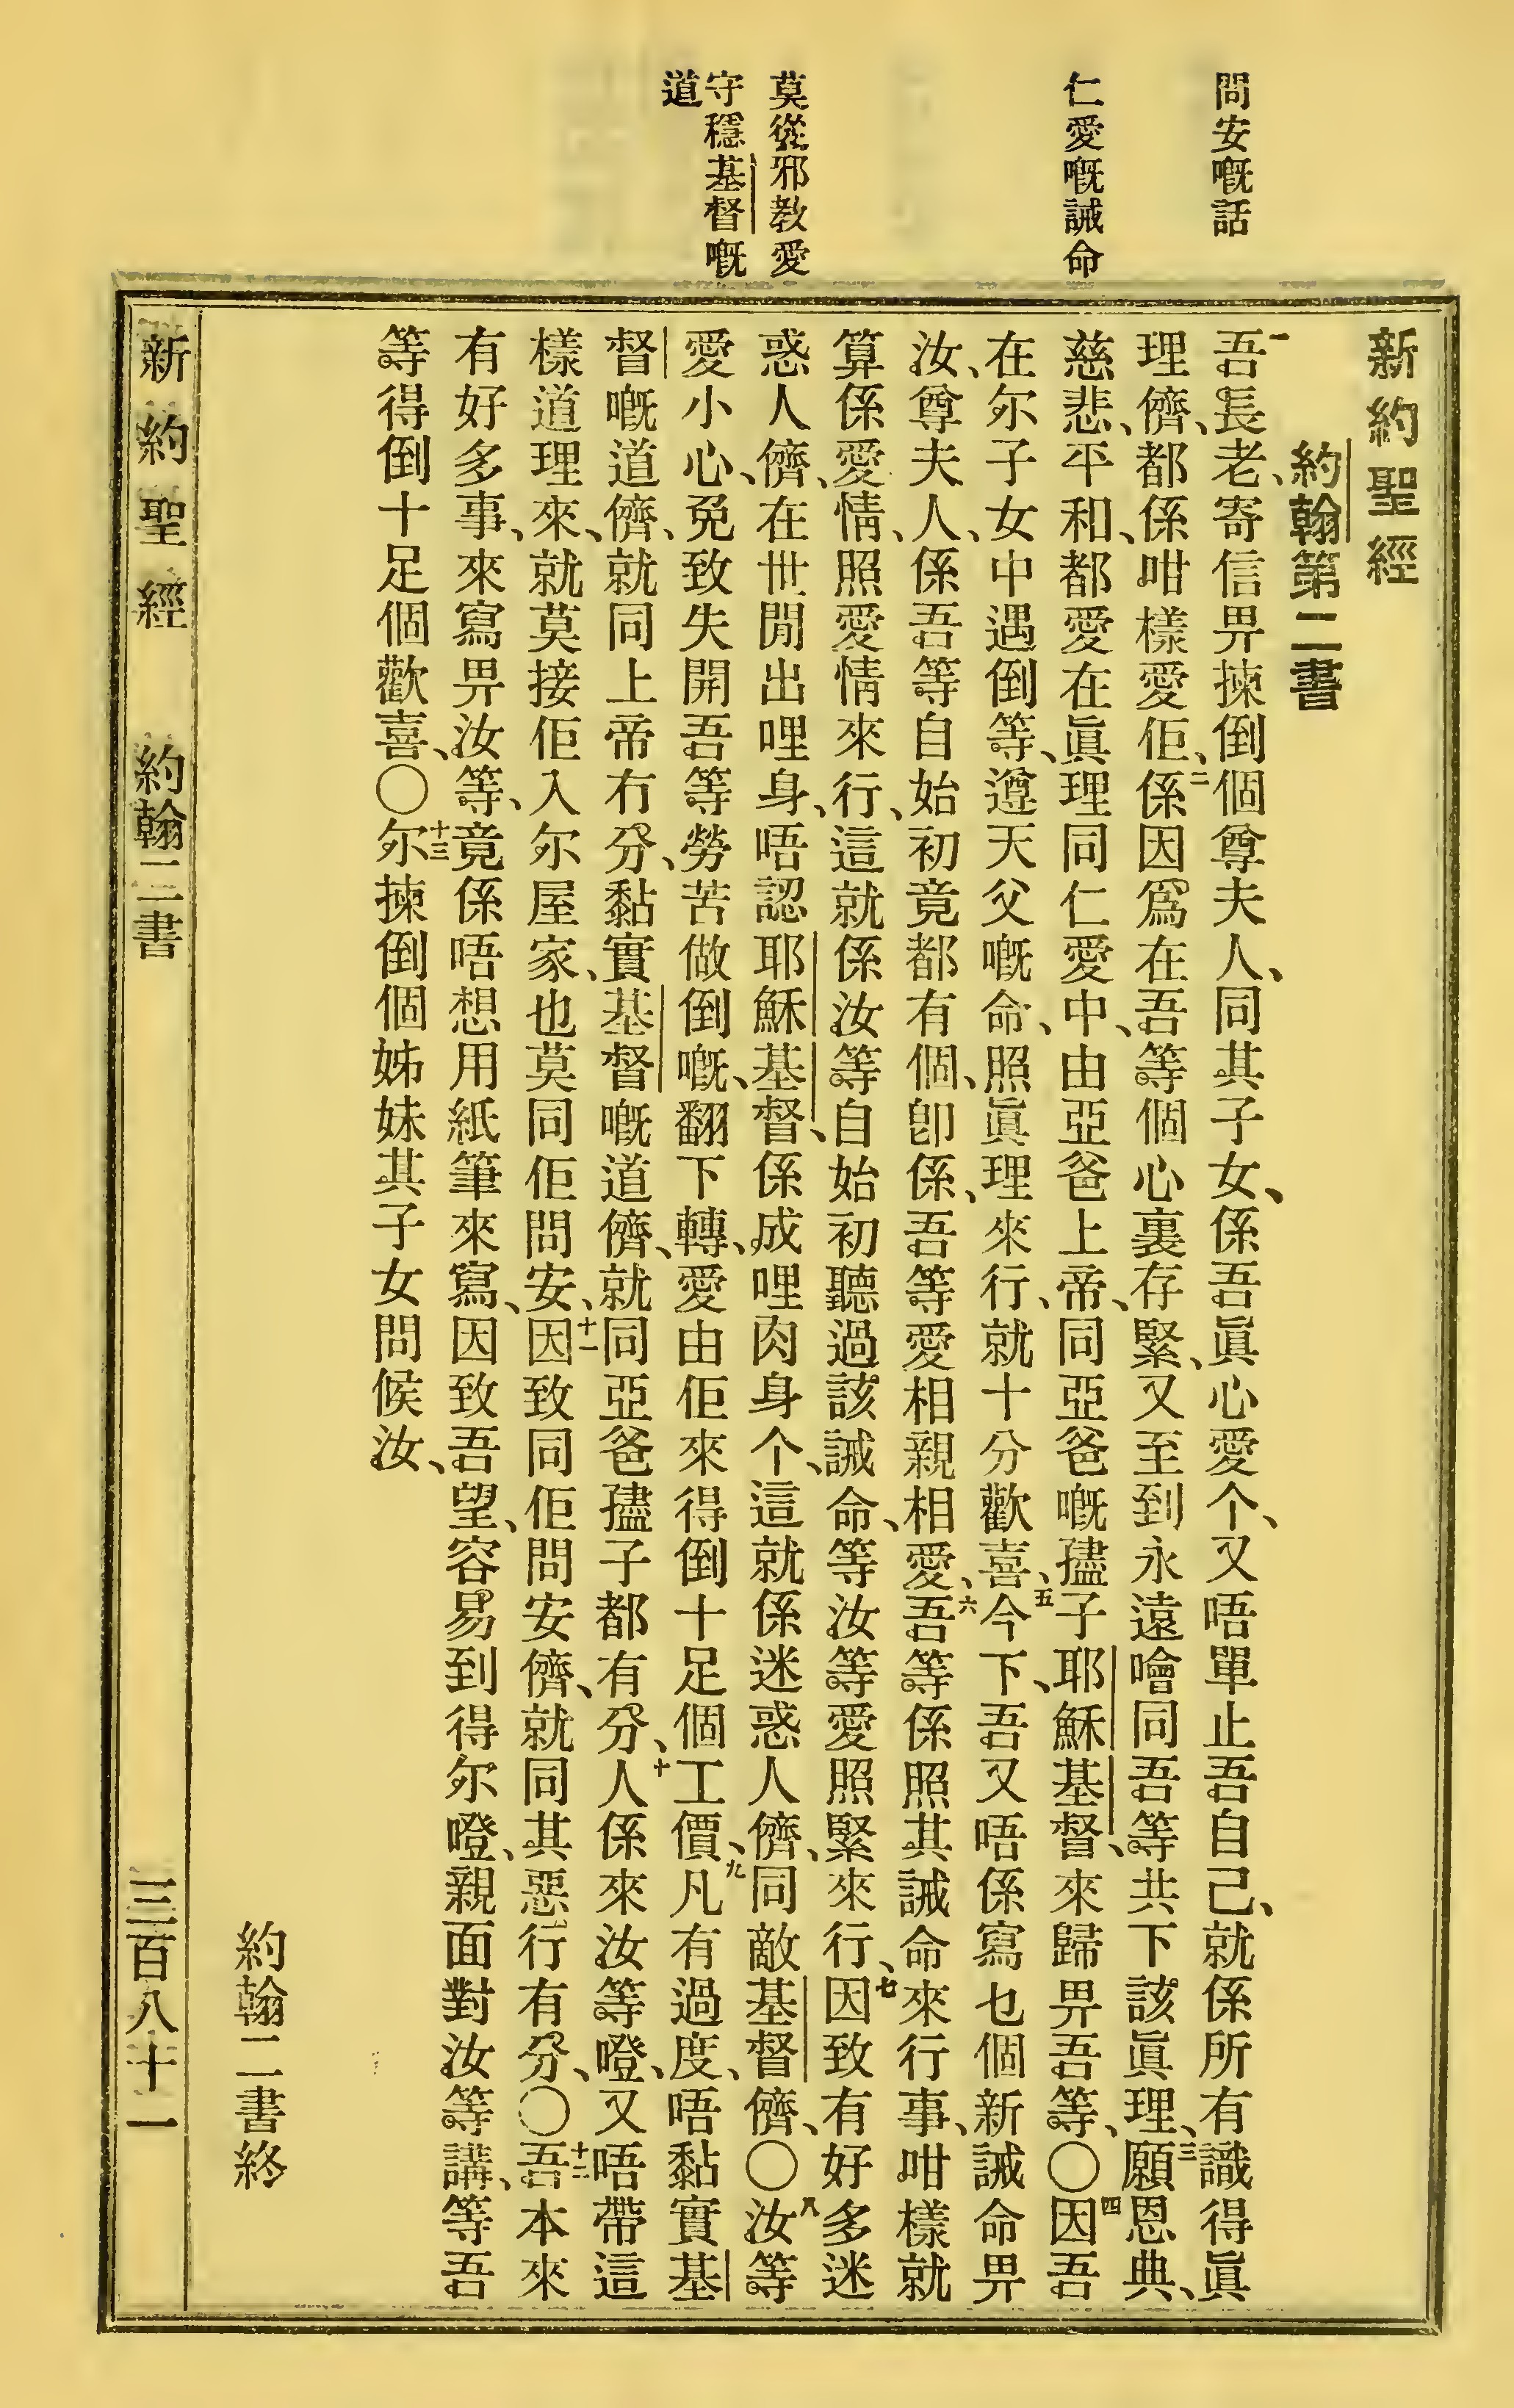 問安嘅話
仁愛嘅誡命
莫從邪教愛
守穩基督嘅
道
新約聖經
約翰第二書
一吾長老、寄信畀揀倒個尊夫人、同其子女、係吾眞心愛个、又唔單止吾自己、就係所有識得眞
理儕、都係咁樣愛佢、二係因爲在吾等個心裏存緊、又至到永遠噲同吾等共下該眞理、三願恩典、
慈悲、平和、都愛在眞理同仁愛中、由亞爸上帝、同亞爸嘅𤘅子耶穌基督、來歸畀吾等、〇四因吾
在尔子女中遇倒等、遵天父嘅命、照眞理來行、就十分歡喜、五今下、吾又唔係寫乜個新誡命畀
汝、尊夫人、係吾等自始初竟都有個、卽係、吾等愛相親相愛、六吾等係照其誡命來行事、咁樣就
算係愛情、照愛情來行、這就係汝等自始初聽過該誡命、等汝等愛照緊來行、七因致有好多迷
惑人儕、在世間出哩身、唔認耶穌基督、係成哩肉身个、這就係迷惑人儕、同敵基督儕、〇八汝等
愛小心、免致失開吾等勞苦做倒嘅、翻下轉、愛由佢來得倒十足個工價、九凡有過度、唔黏實基
督嘅道儕、就同上帝冇分、黏實基督嘅道儕、就同亞爸𤘅子都有分、十人係來汝等㬹、又唔帶這
樣道理來、就莫接佢入尔屋家、也莫同佢問安、十一因致同佢問安儕、就同其惡行有分、〇十二吾本來
有好多事、來寫畀汝等、竟係唔想用紙筆來寫、因致吾望、容易到得尔㬹、親面對汝等講、等吾
等得倒十足個歡喜、〇十三尔揀倒個姊妹其子女問候汝、
約翰二書終
新約聖經　約翰二書　三百八十一